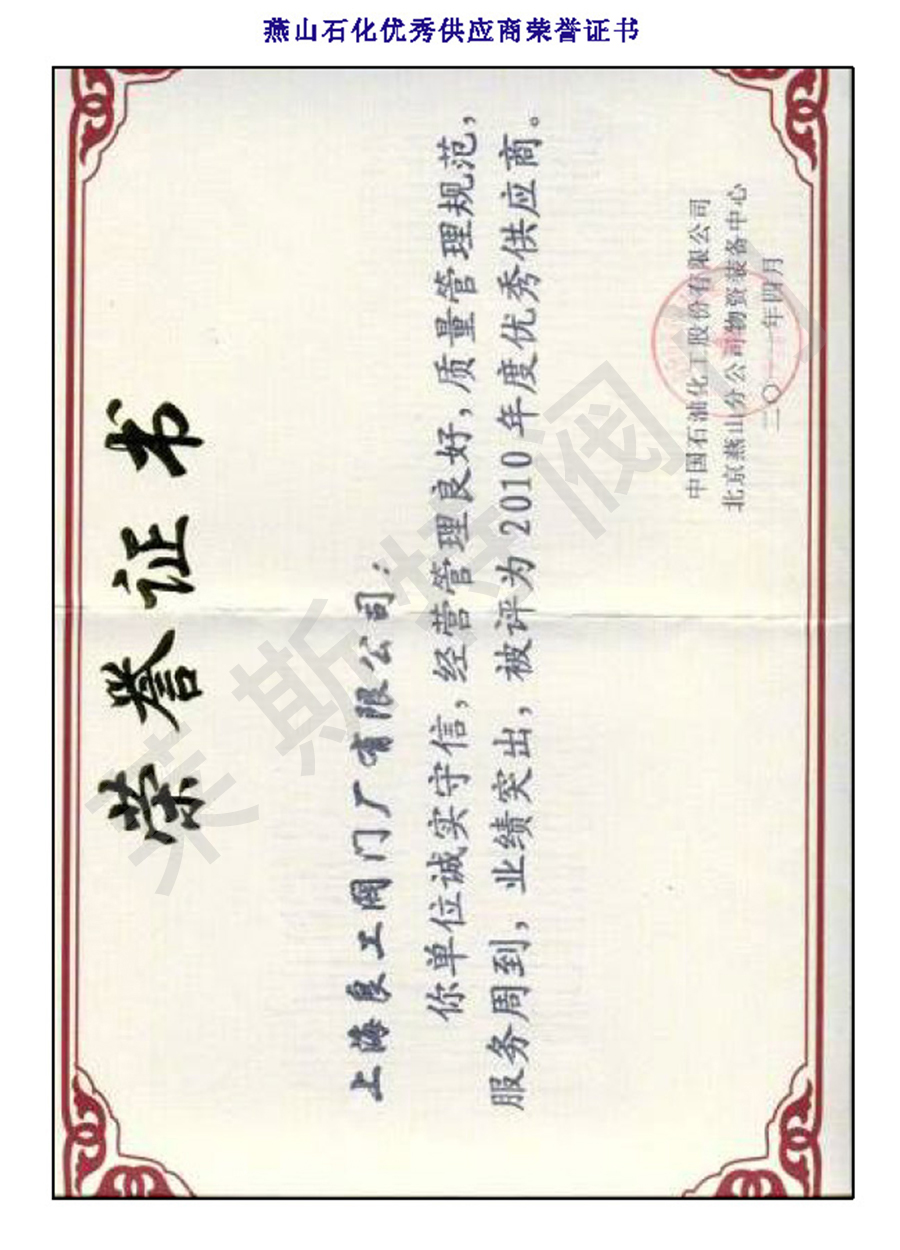 燕山石化优秀供应商荣誉证书
荣誉证书
上海良工阀门厂有限公司：
你单位诚实守信，经营管理良好，质量管理规范，
服务周到，业绩突出，被评为2010年度优秀供应商。
中国石油化工股份有限公司
北京燕山分公司物资装备中心
二〇一一年四月
莱斯特阀门